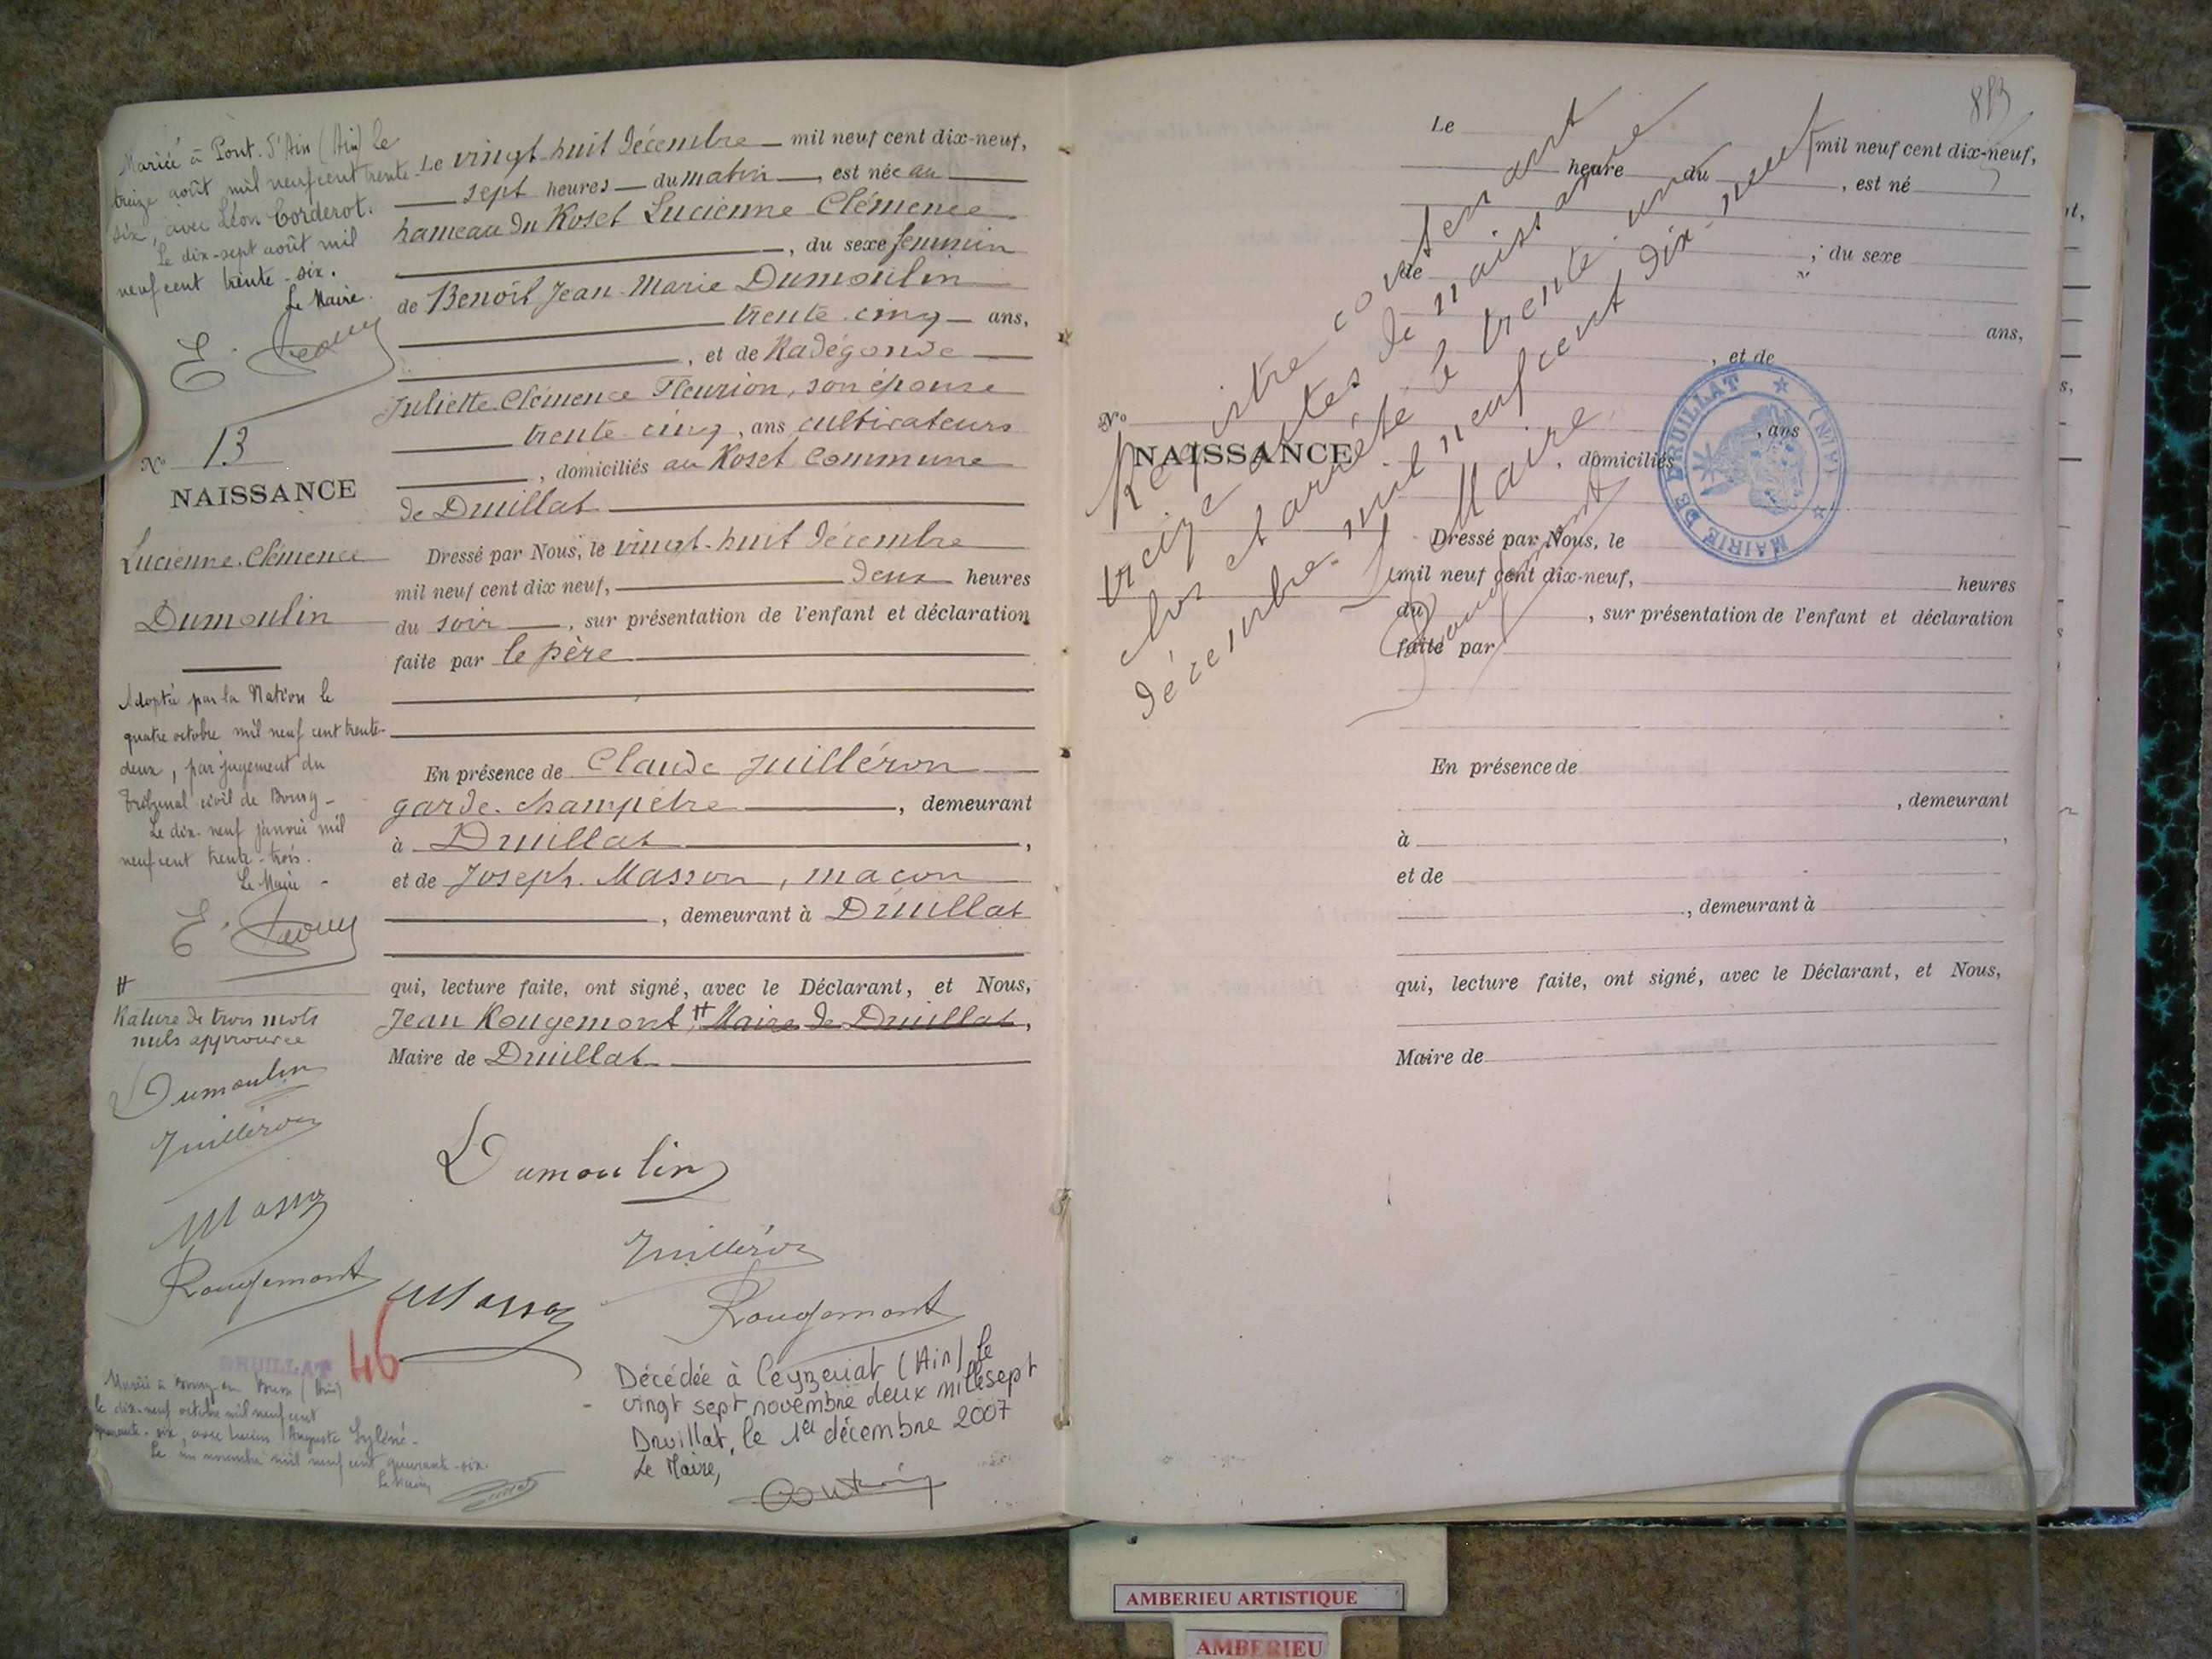 Mariée à Pont-d'Ain (Ain) le
treize août mil neuf cent trente-
six, avec Léon Corderot.
Le dix-sept août mil
neuf cent trente-six.
Le Maire.
No 13
NAISSANCE
Lucienne Clémence
Dumoulin
Adoptée par la Nation le
quatre octobre mil neuf cent trente-
deux, par jugement du
Tribunal civil de Bourg-
Le dix-neuf janvier mil
neuf cent trente-trois.
Le Maire -
#
Rature de trois mots
nuls approuvée
Dumoulin
Juilléron
Masson
Rougemont
DRUILLAT
46
Mariée à Bourg-en-Bresse (Ain)
le dix-neuf octobre mil neuf cent
quarante-six, avec Lucien Auguste
Le un novembre mil neuf cent quarante-six
Le Maire
Le vingt-huit décembre mil neuf cent dix-neuf,
sept heures du matin, est née au
hameau du Roset Lucienne Clémence
, du sexe féminin
de Benoît Jean-Marie Dumoulin
trente-cinq ans,
, et de Radégonde
Juliette Clémence Fleurion, son épouse
trente-cinq, ans cultivateurs
, domiciliés au Roset commune
de Druillat
Dressé par Nous, le vingt-huit décembre
mil neuf cent dix neuf, deux heures
du soir, sur présentation de l'enfant et déclaration
faite par le père
En présence de Claude Juilléron
garde-champêtre, demeurant
à Druillat,
et de Joseph Masson, maçon
, demeurant à Druillat
qui, lecture faite, ont signé, avec le Déclarant, et Nous,
Jean Rougemont, # Maire de Druillat,
Maire de Druillat
Dumoulin
Juilléron
Masson
Rougemont
Décédée à Ceyzeriat (Ain) le
vingt sept novembre deux mille sept
Druillat, le 1er décembre 2007
Le Maire,
813
Le mil neuf cent dix-neuf,
heure du, est né
, du sexe
de
ans,
, et de
, ans
, domiciliés
No
NAISSANCE
Registre contenant
treize actes de naissance
clos et arrêté le trente-un
décembre mil neuf cent dix-neuf
Le Maire
Rougemont
MAIRIE DE DRUILLAT (AIN)
Dressé par Nous, le
mil neuf cent dix-neuf, heures
du, sur présentation de l'enfant et déclaration
faite par
En présence de
, demeurant
à,
et de
, demeurant à
qui, lecture faite, ont signé, avec le Déclarant, et Nous,
Maire de
AMBERIEU ARTISTIQUE
AMBERIEU